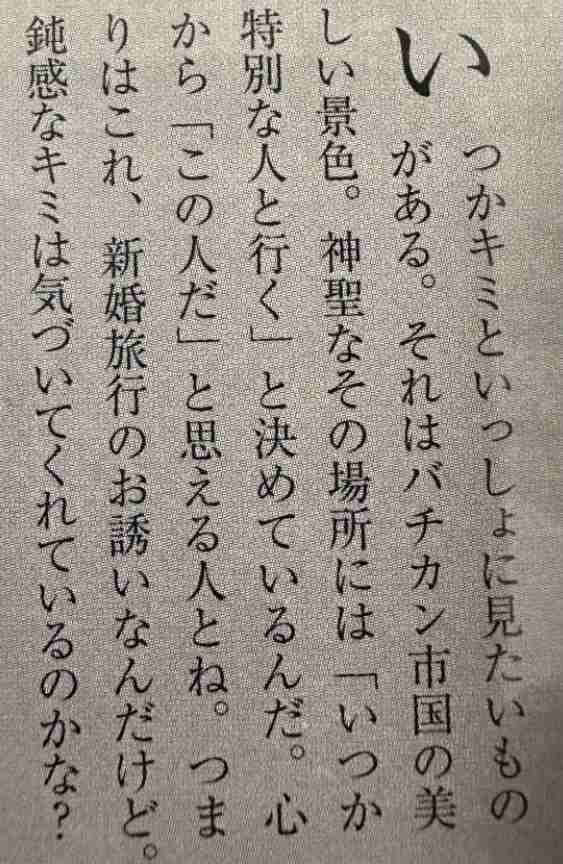 いつかキミといっしょに見たいもの
がある。それはバチカン市国の美
しい景色。神聖なその場所には「いつか
特別な人と行く」と決めているんだ。心
から「この人だ」と思える人とね。つま
りはこれ、新婚旅行のお誘いなんだけど。
鈍感なキミは気づいてくれているのかな？